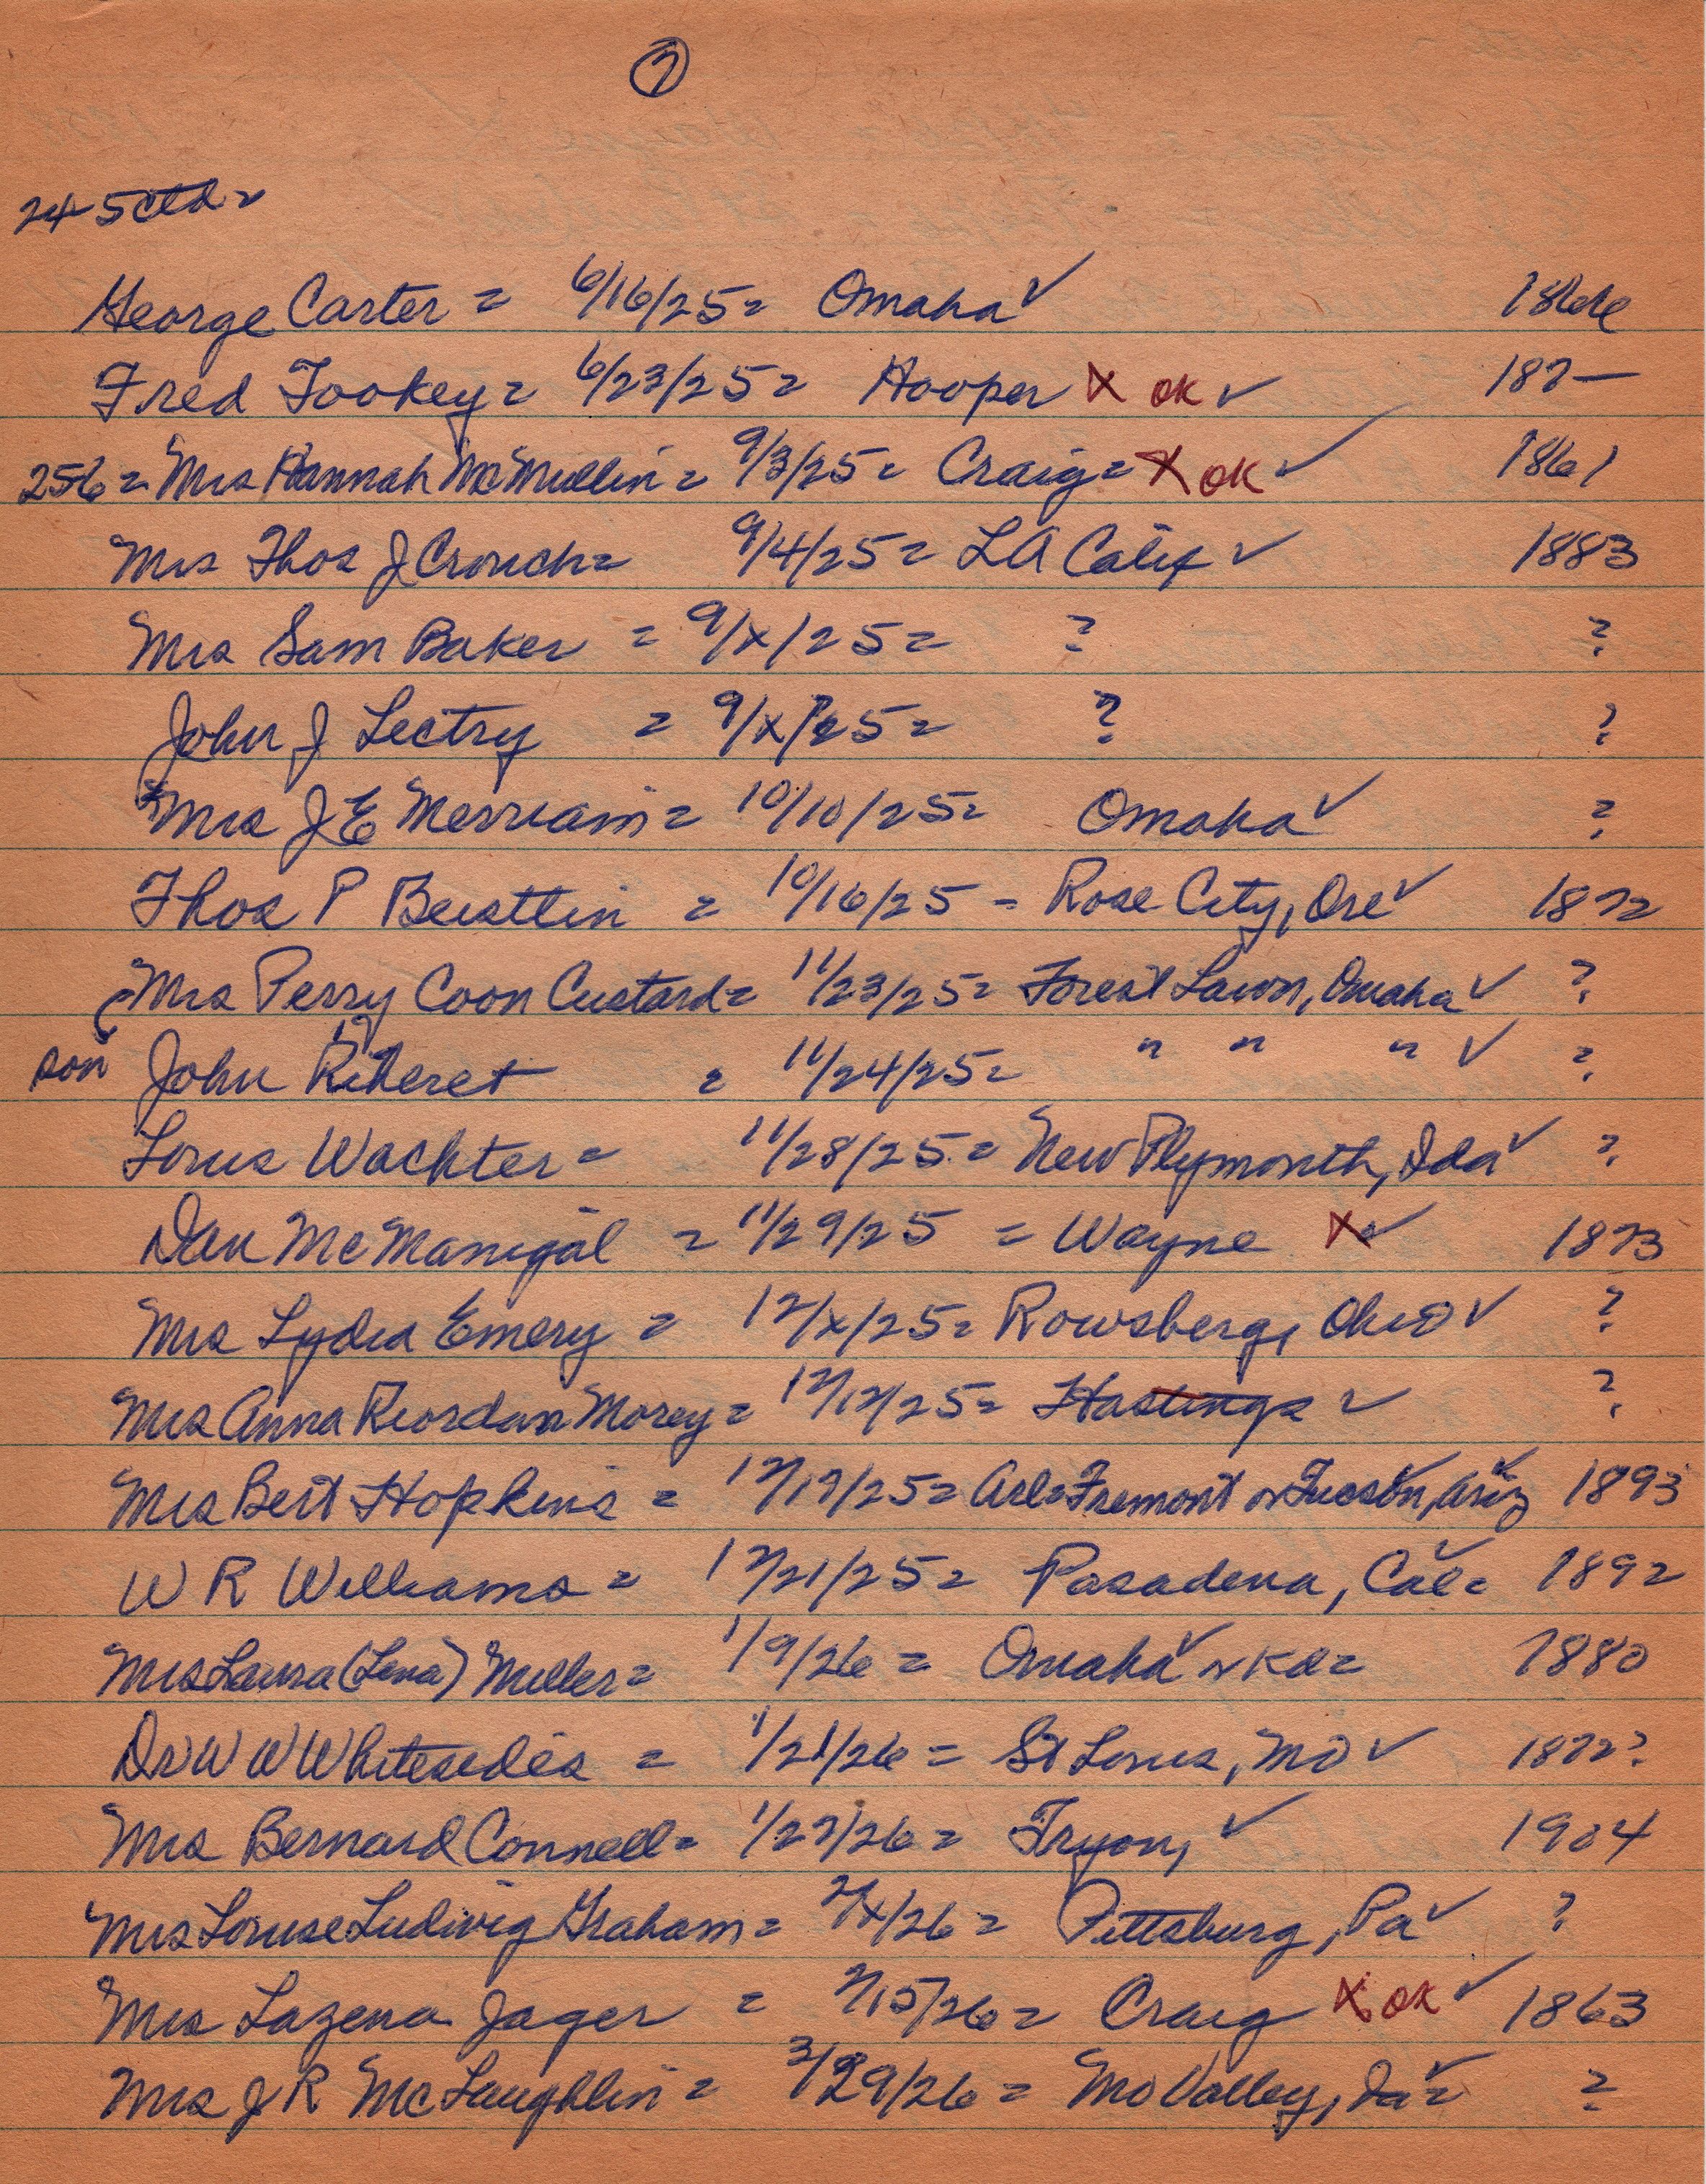 7
245 ctd =
George Carter = 6/16/25 = Omaha ✓ 1866
Fred Tookey = 6/23/25 = Hooper X OK ✓ 187—
256 = Mrs Hannah McMullin = 9/3/25 = Craig = X OK ✓ 1861
Mrs Thos J Crouch = 9/4/25 = LA Calif ✓ 1883
Mrs Sam Baker = 9/x/25 = ? ?
John J Lectry = 9/x/25 = ? ?
Mrs J E Merriam = 10/10/25 = Omaha ✓ ?
Thos P Beistlin = 10/16/25 - Rose City, Ore ✓ 1872
Mrs Perry Coon Custard = 11/23/25 = Forest Lawn, Omaha ✓ ?
son John = 11/24/25 = " " " ✓ ?
Louis Wachter = 11/28/25 = New Plymouth, Ida ✓ ?
Dan McManigal = 11/29/25 = Wayne X ✓ 1873
Mrs Lydia Emery = 12/x/25 = Rowsberg, Ohio ✓ ?
Mrs Anna Riordan Morey = 12/12/25 = Hastings ✓ ?
Mrs Bert Hopkins = 12/17/25 = Arl = Fremont or Tucson, Ariz ✓ 1893
W R Williams = 12/21/25 = Pasadena, Cal = ✓ 1892
Mrs Laura (Lena) Miller = 1/9/26 = Omaha ✓ or Kd = 1880
Dr W W Whitesides = 1/21/26 = St Louis, Mo ✓ 1872?
Mrs Bernard Connell = 1/27/26 = Tryon, ✓ 1904
Mrs Louise Ludwig Graham = 2/x/26 = Pittsburg, Pa ✓ ?
Mrs Lazena Jager = 2/15/26 = Craig X OK ✓ 1863
Mrs J R McLaughlin = 3/29/26 = Mo Valley, Ia = ✓ ?